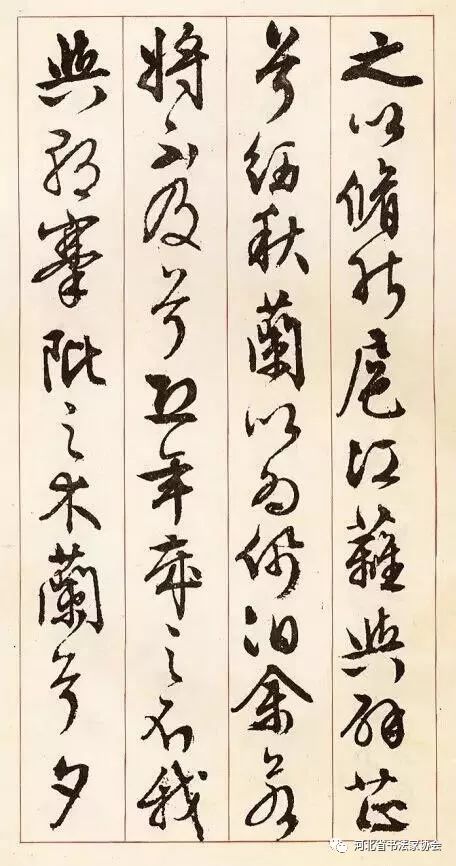 之以脩能扈江蘺與辟芷
兮紉秋蘭以為佩汩余若
將不及兮恐年歲之不我
與朝搴阰之木蘭兮夕
河北省书法家协会